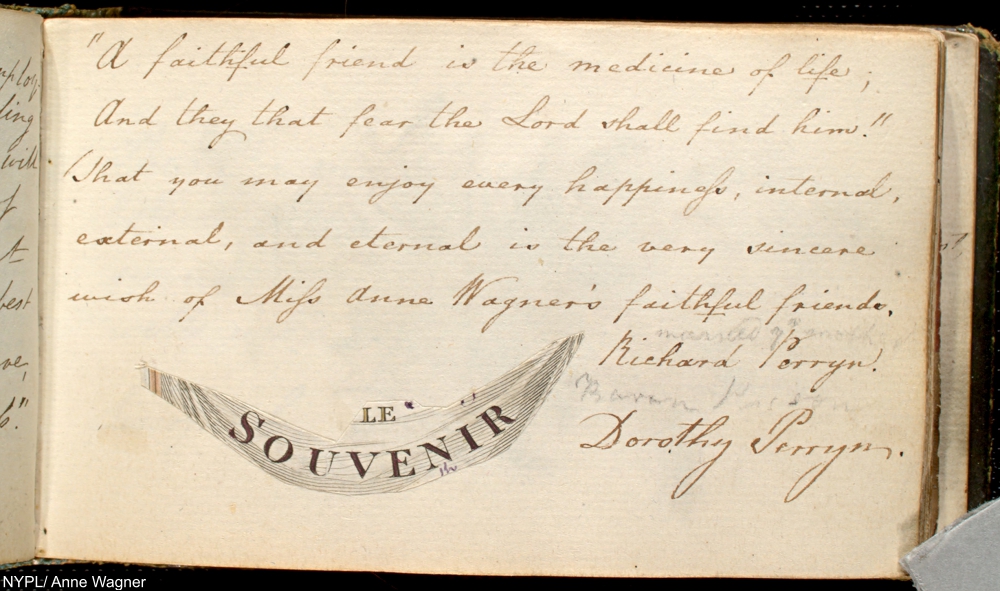 "A faithful friend is the medicine of life;
And they that fear the Lord shall find him."
That you may enjoy every happineſs, internal,
external, and eternal is the very sincere
wish of Miſs Anne Wagner's faithful friends,
married
Richard Perryn.
Baron
Dorothy Perryn.
LE
SOUVENIR
ploy
ling
will
f
best
ve,
NYPL/ Anne Wagner